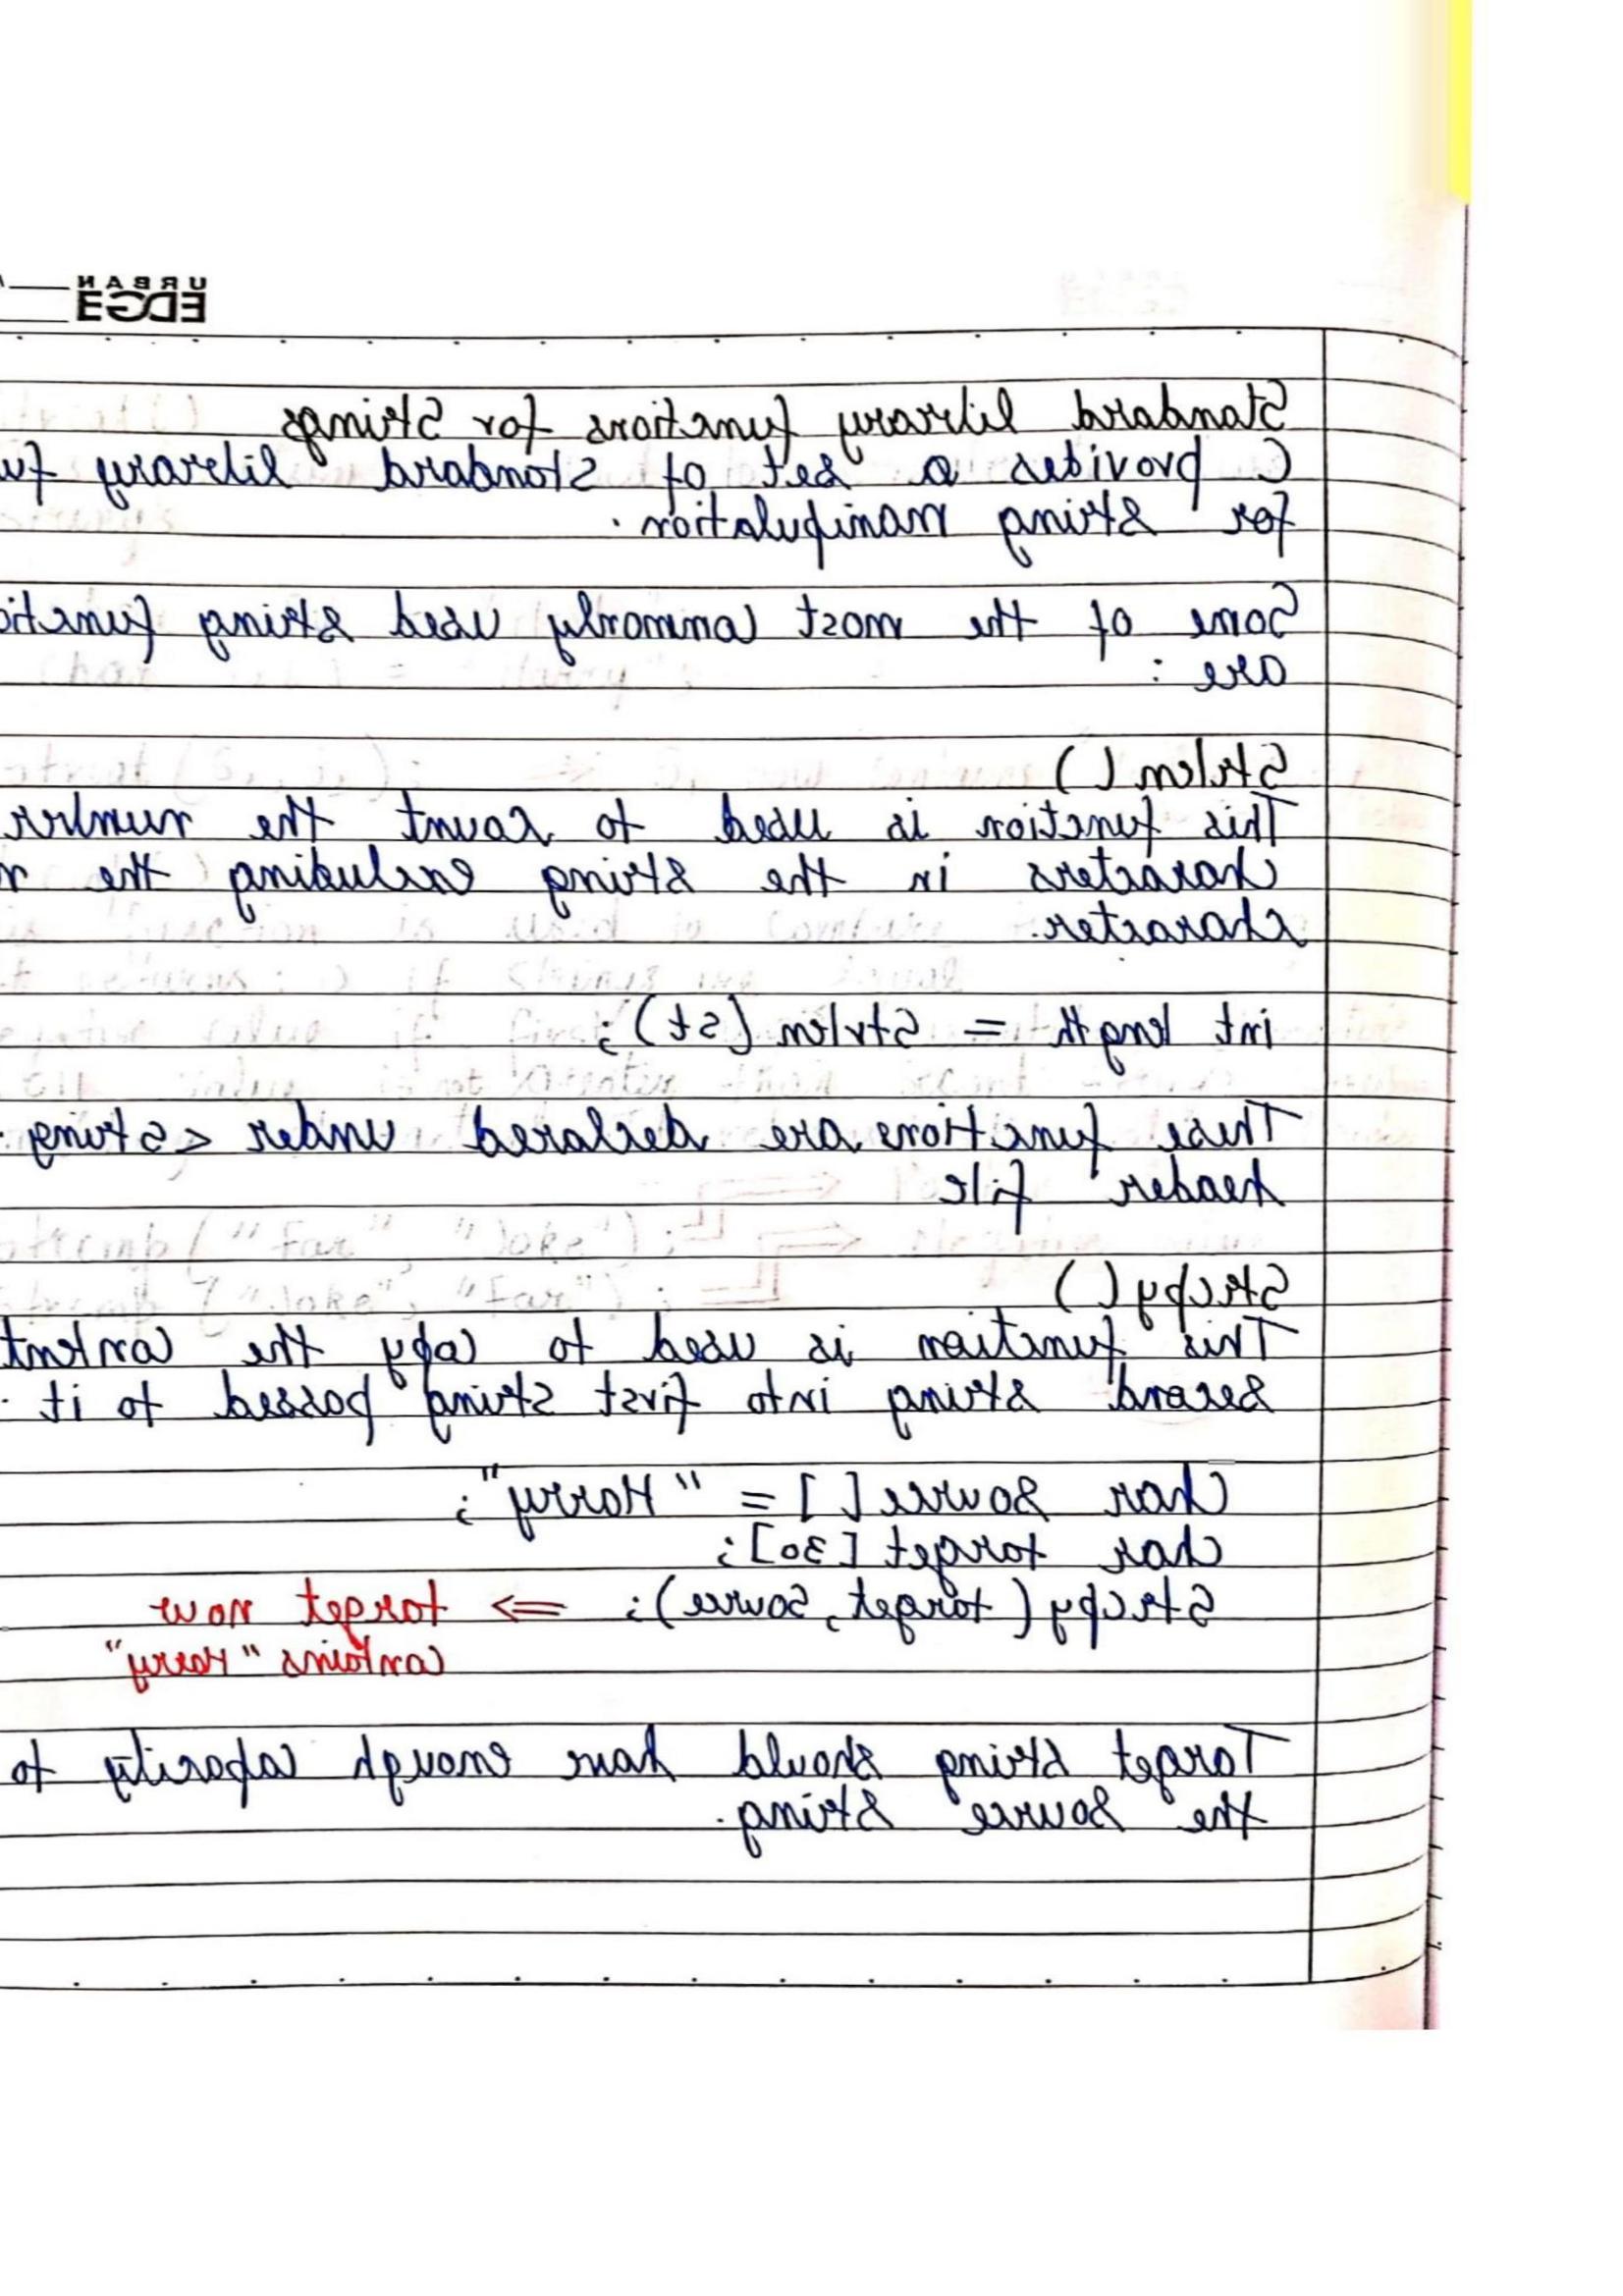 URBAN
EDGE
Standard library functions for Strings
C provides a set of standard library fu
for string manipulation.
Some of the most commonly used string functio
are :
Strlen ( )
This function is used to count the number
characters in the string excluding the n
character.
int length = Strlen (st) ;
These functions are declared under <string.
header file
Strcpy ( )
This function is used to copy the content
second string into first string passed to it .
Char Source [ ] = "Harry" ;
Char target [30] ;
Strcpy ( target, Source) ; => target now
contains "Harry"
Target string should have enough capacity to
the source string.